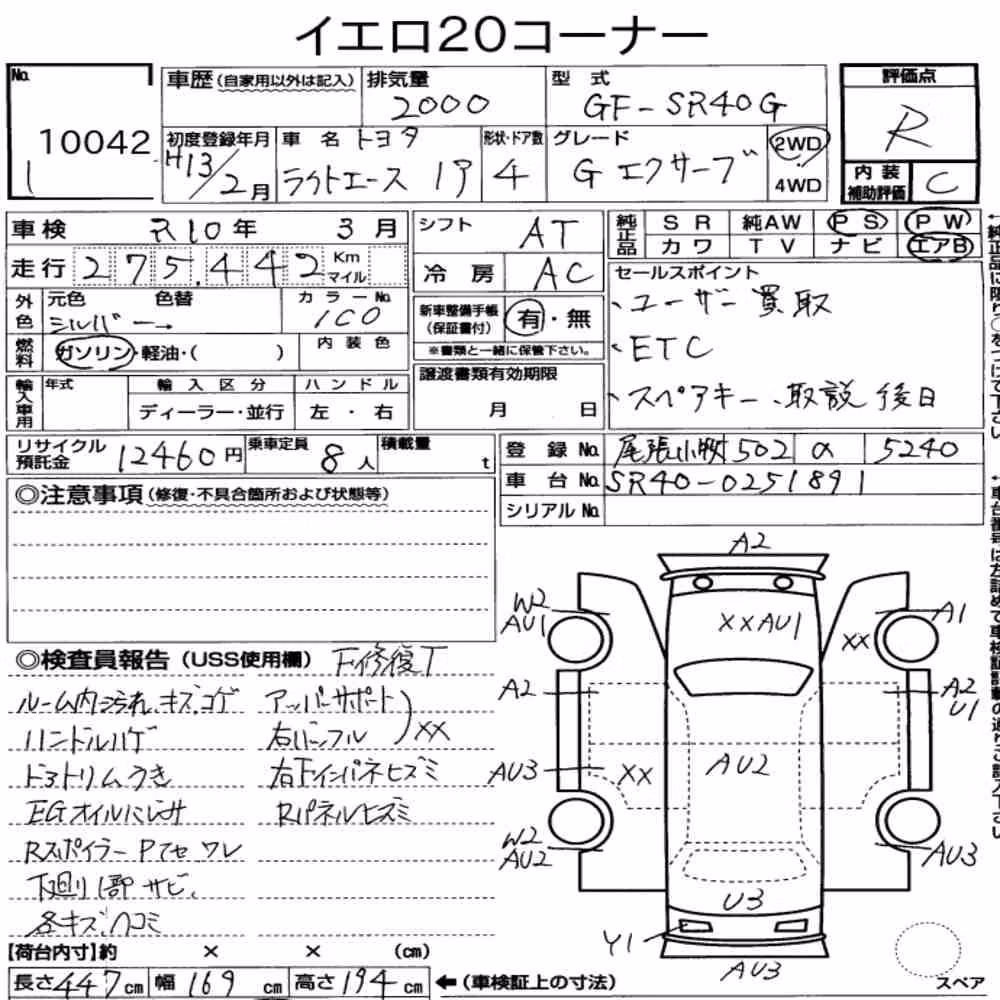 イエロ20コーナー
No. 10042
1
車歴(自家用以外は記入)
排気量 2000
型式 GF-SR40G
評価点 R
初度登録年月 H13/2月
車名 トヨタ ライトエース 1ア
形状・ドア数 4
グレード G エクサーブ
2WD
4WD
内装補助評価 C
車検 R10年 3月
走行 275,442 Km マイル
シフト AT
冷房 AC
純正品 SR 純AW PS PW
カワ TV ナビ エアB
外色 元色 シルバー→ 色替
カラーNo. 1C0
燃料 ガソリン・軽油・( )
内装色
新車整備手帳(保証書付) 有・無
※書類と一緒に保管下さい。
セールスポイント
・ユーザー買取
・ETC
・スペアキー、取説 後日
輸入車用 年式 輸入区分 ハンドル
ディーラー・並行 左・右
譲渡書類有効期限
月 日
リサイクル預託金 12460円
乗車定員 8人
積載量 t
登録No. 尾張小牧 502 α 5240
車台No. SR40-0251891
シリアルNo.
◎注意事項(修復・不具合箇所および状態等)
◎検査員報告(USS使用欄) 下修復T
ルーム内ヨゴレ、キズ、コゲ
ハンドルハゲ
ドアトリムうき
EGオイルにじみ
Rスポイラー Pアセ ワレ
下廻り1部サビ、
各キズ、ヘコミ
アッパーサポート
右インフル ) XX
右下インパネヒズミ
Rパネルヒズミ
A2
W2
AU1
XXAU1
XX
A1
A2
A2
U1
AU3
XX
AU2
W2
AU2
AU3
U3
Y1
AU3
スペア
【荷台内寸】約 × × (cm)
長さ447cm 幅169cm 高さ194cm ←(車検証上の寸法)